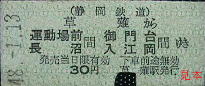 (静岡鉄道)
草薙から
運動場前 御門台
間 間 ゆき
長沼 入江岡
発売当日限有効 下車前途無効
30円 草薙駅発行
48.-1.13
見本